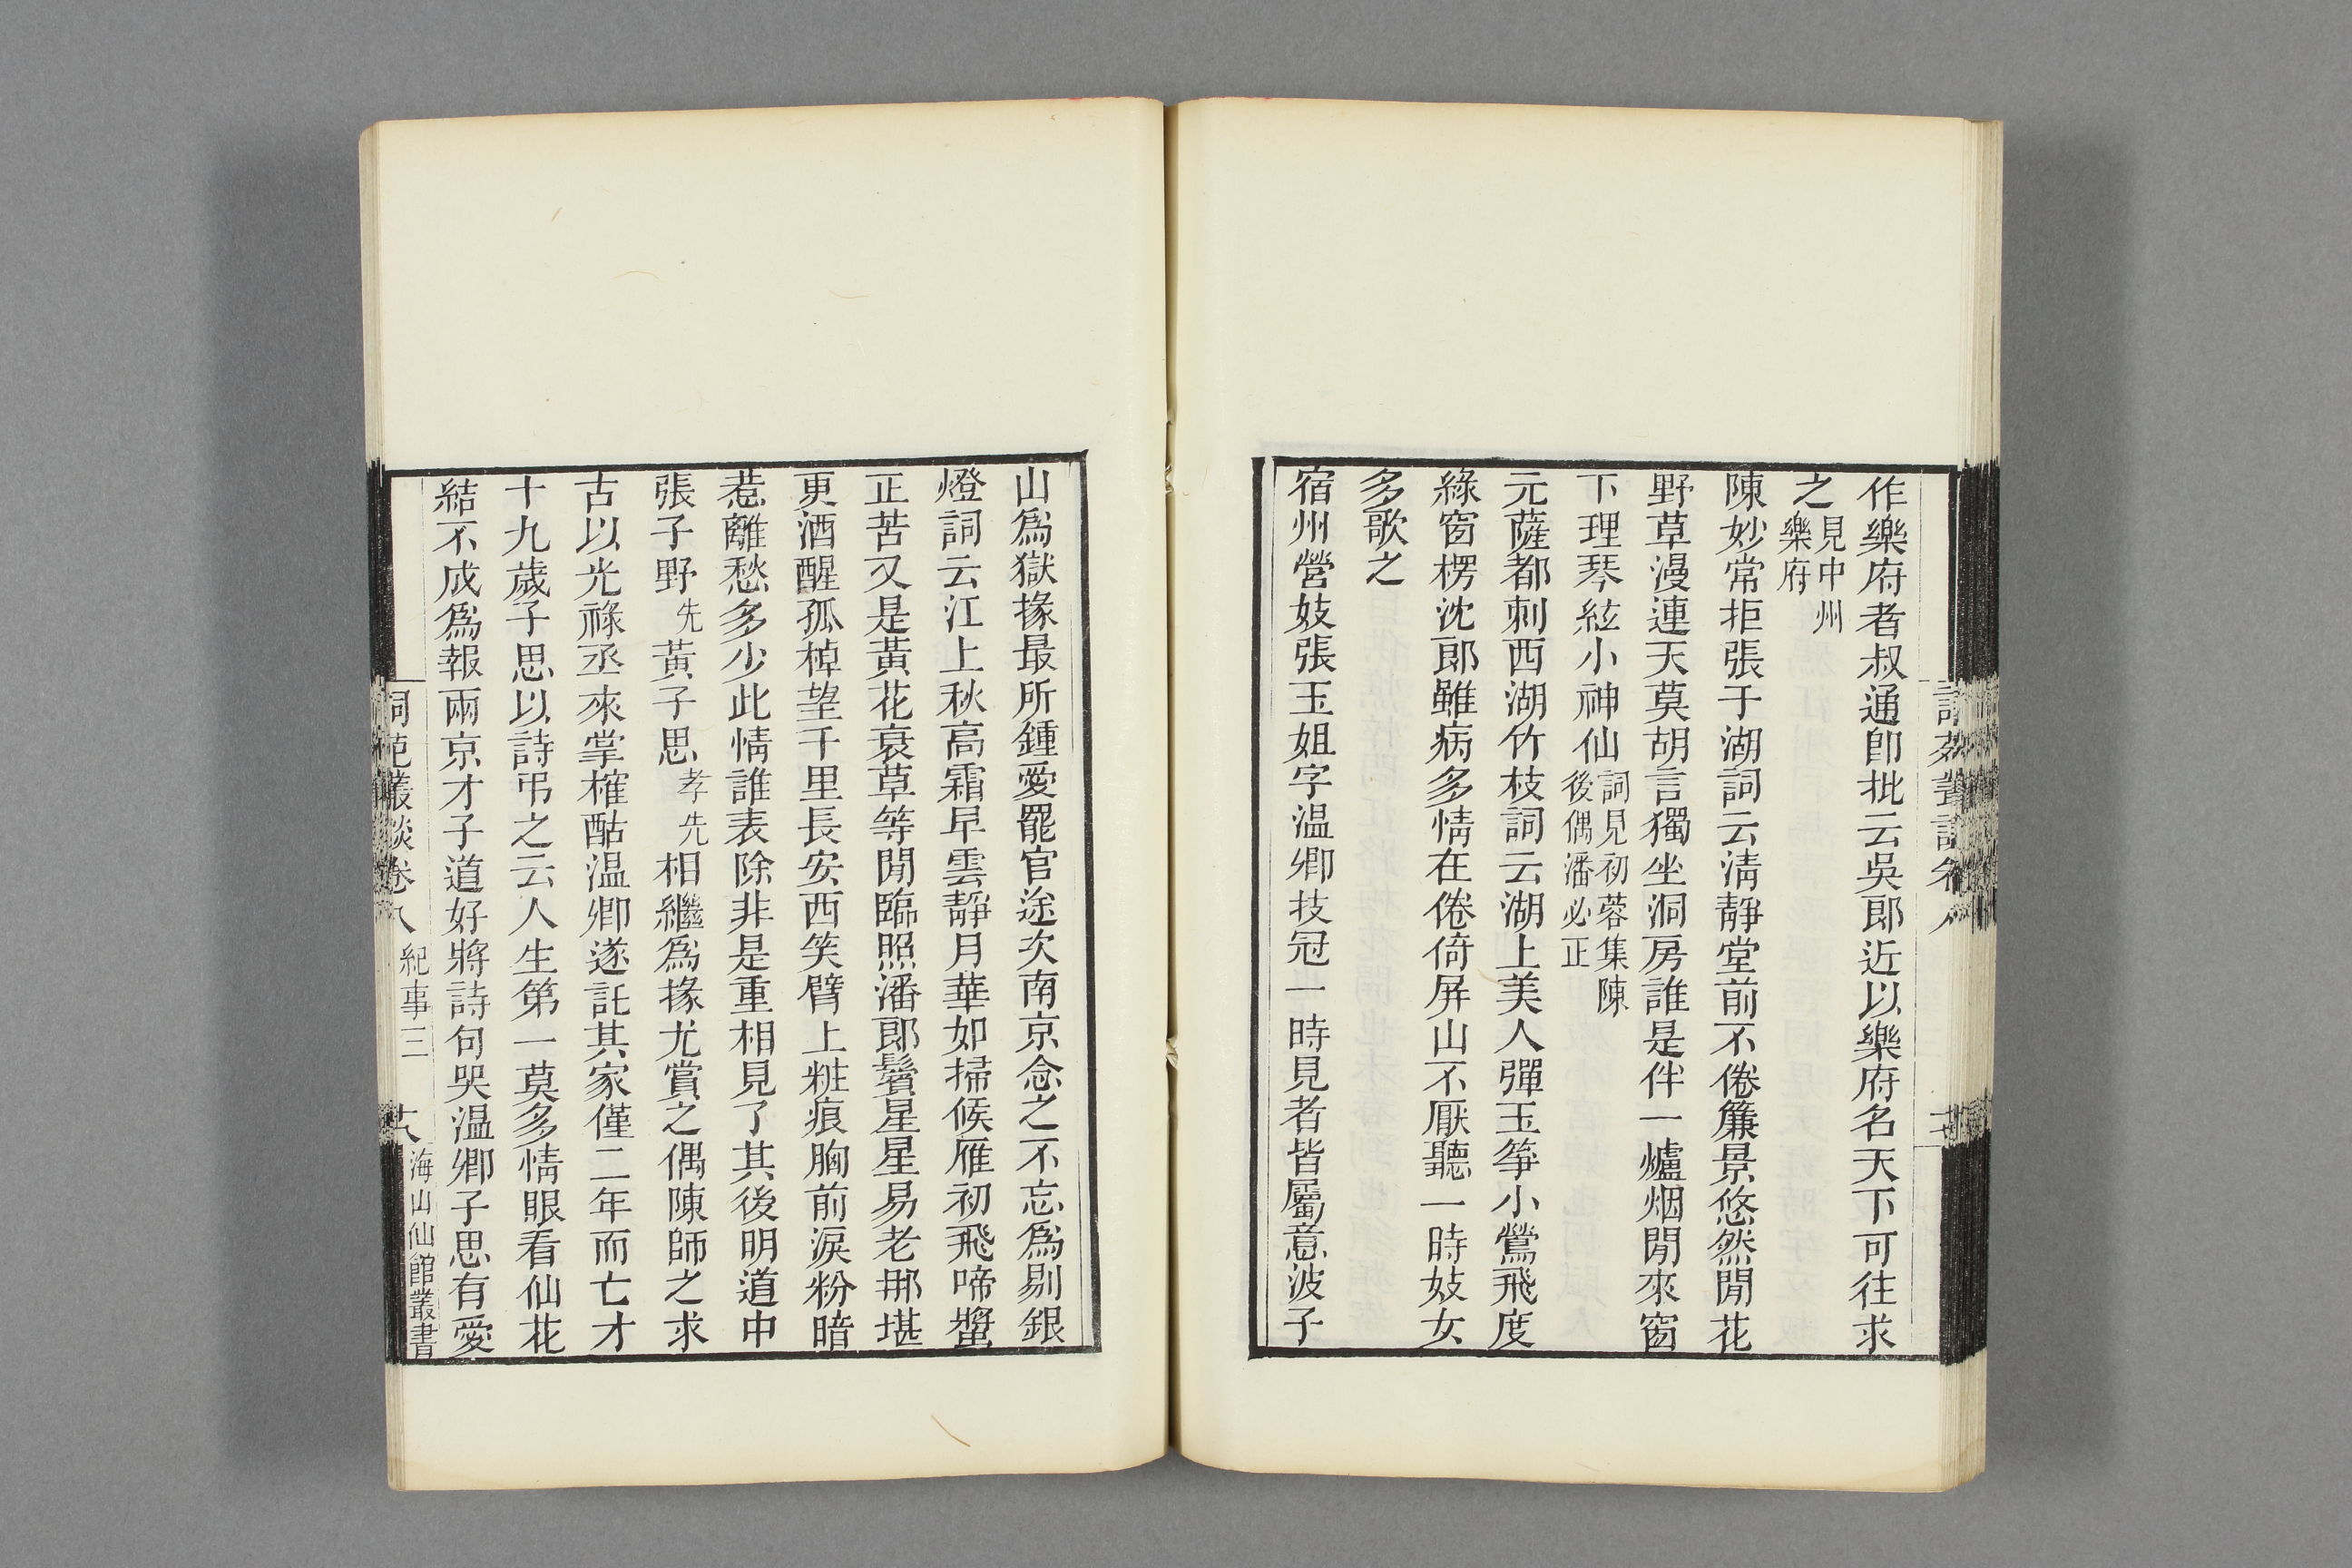 作樂府者叔通卽批云吳郞近以樂府名天下可往求
之見中州樂府
陳妙常拒張于湖詞云淸靜堂前不倦簾景悠然閒花
野草漫連天莫胡言獨坐洞房誰是伴一爐烟閒來窗
下理琴絃小神仙詞見初蓉集陳後偶潘必正
元薩都刺西湖竹枝詞云湖上美人彈玉箏小鶯飛度
綠窗楞沈郞雖病多情在倦倚屏山不厭聽一時妓女
多歌之
宿州營妓張玉姐字温卿技冠一時見者皆屬意波子
山爲獄掾最所鍾愛罷官途次南京念之不忘爲剔銀
燈詞云江上秋高霜早雲靜月華如掃候雁初飛啼螿
正苦又是黃花衰草等閒臨照潘郞鬢星星易老那堪
更酒醒孤棹望千里長安西笑臂上粧痕胸前淚粉暗
惹離愁多少此情誰表除非是重相見了其後明道中
張子野先黃子思孝先相繼爲掾尤賞之偶陳師之求
古以光祿丞來掌榷酤温卿遂託其家僅二年而亡才
十九歲子思以詩弔之云人生第一莫多情眼看仙花
結不成爲報兩京才子道好將詩句哭温卿子思有愛
詞苑叢談卷八 紀事三 廿八 海山仙館叢書